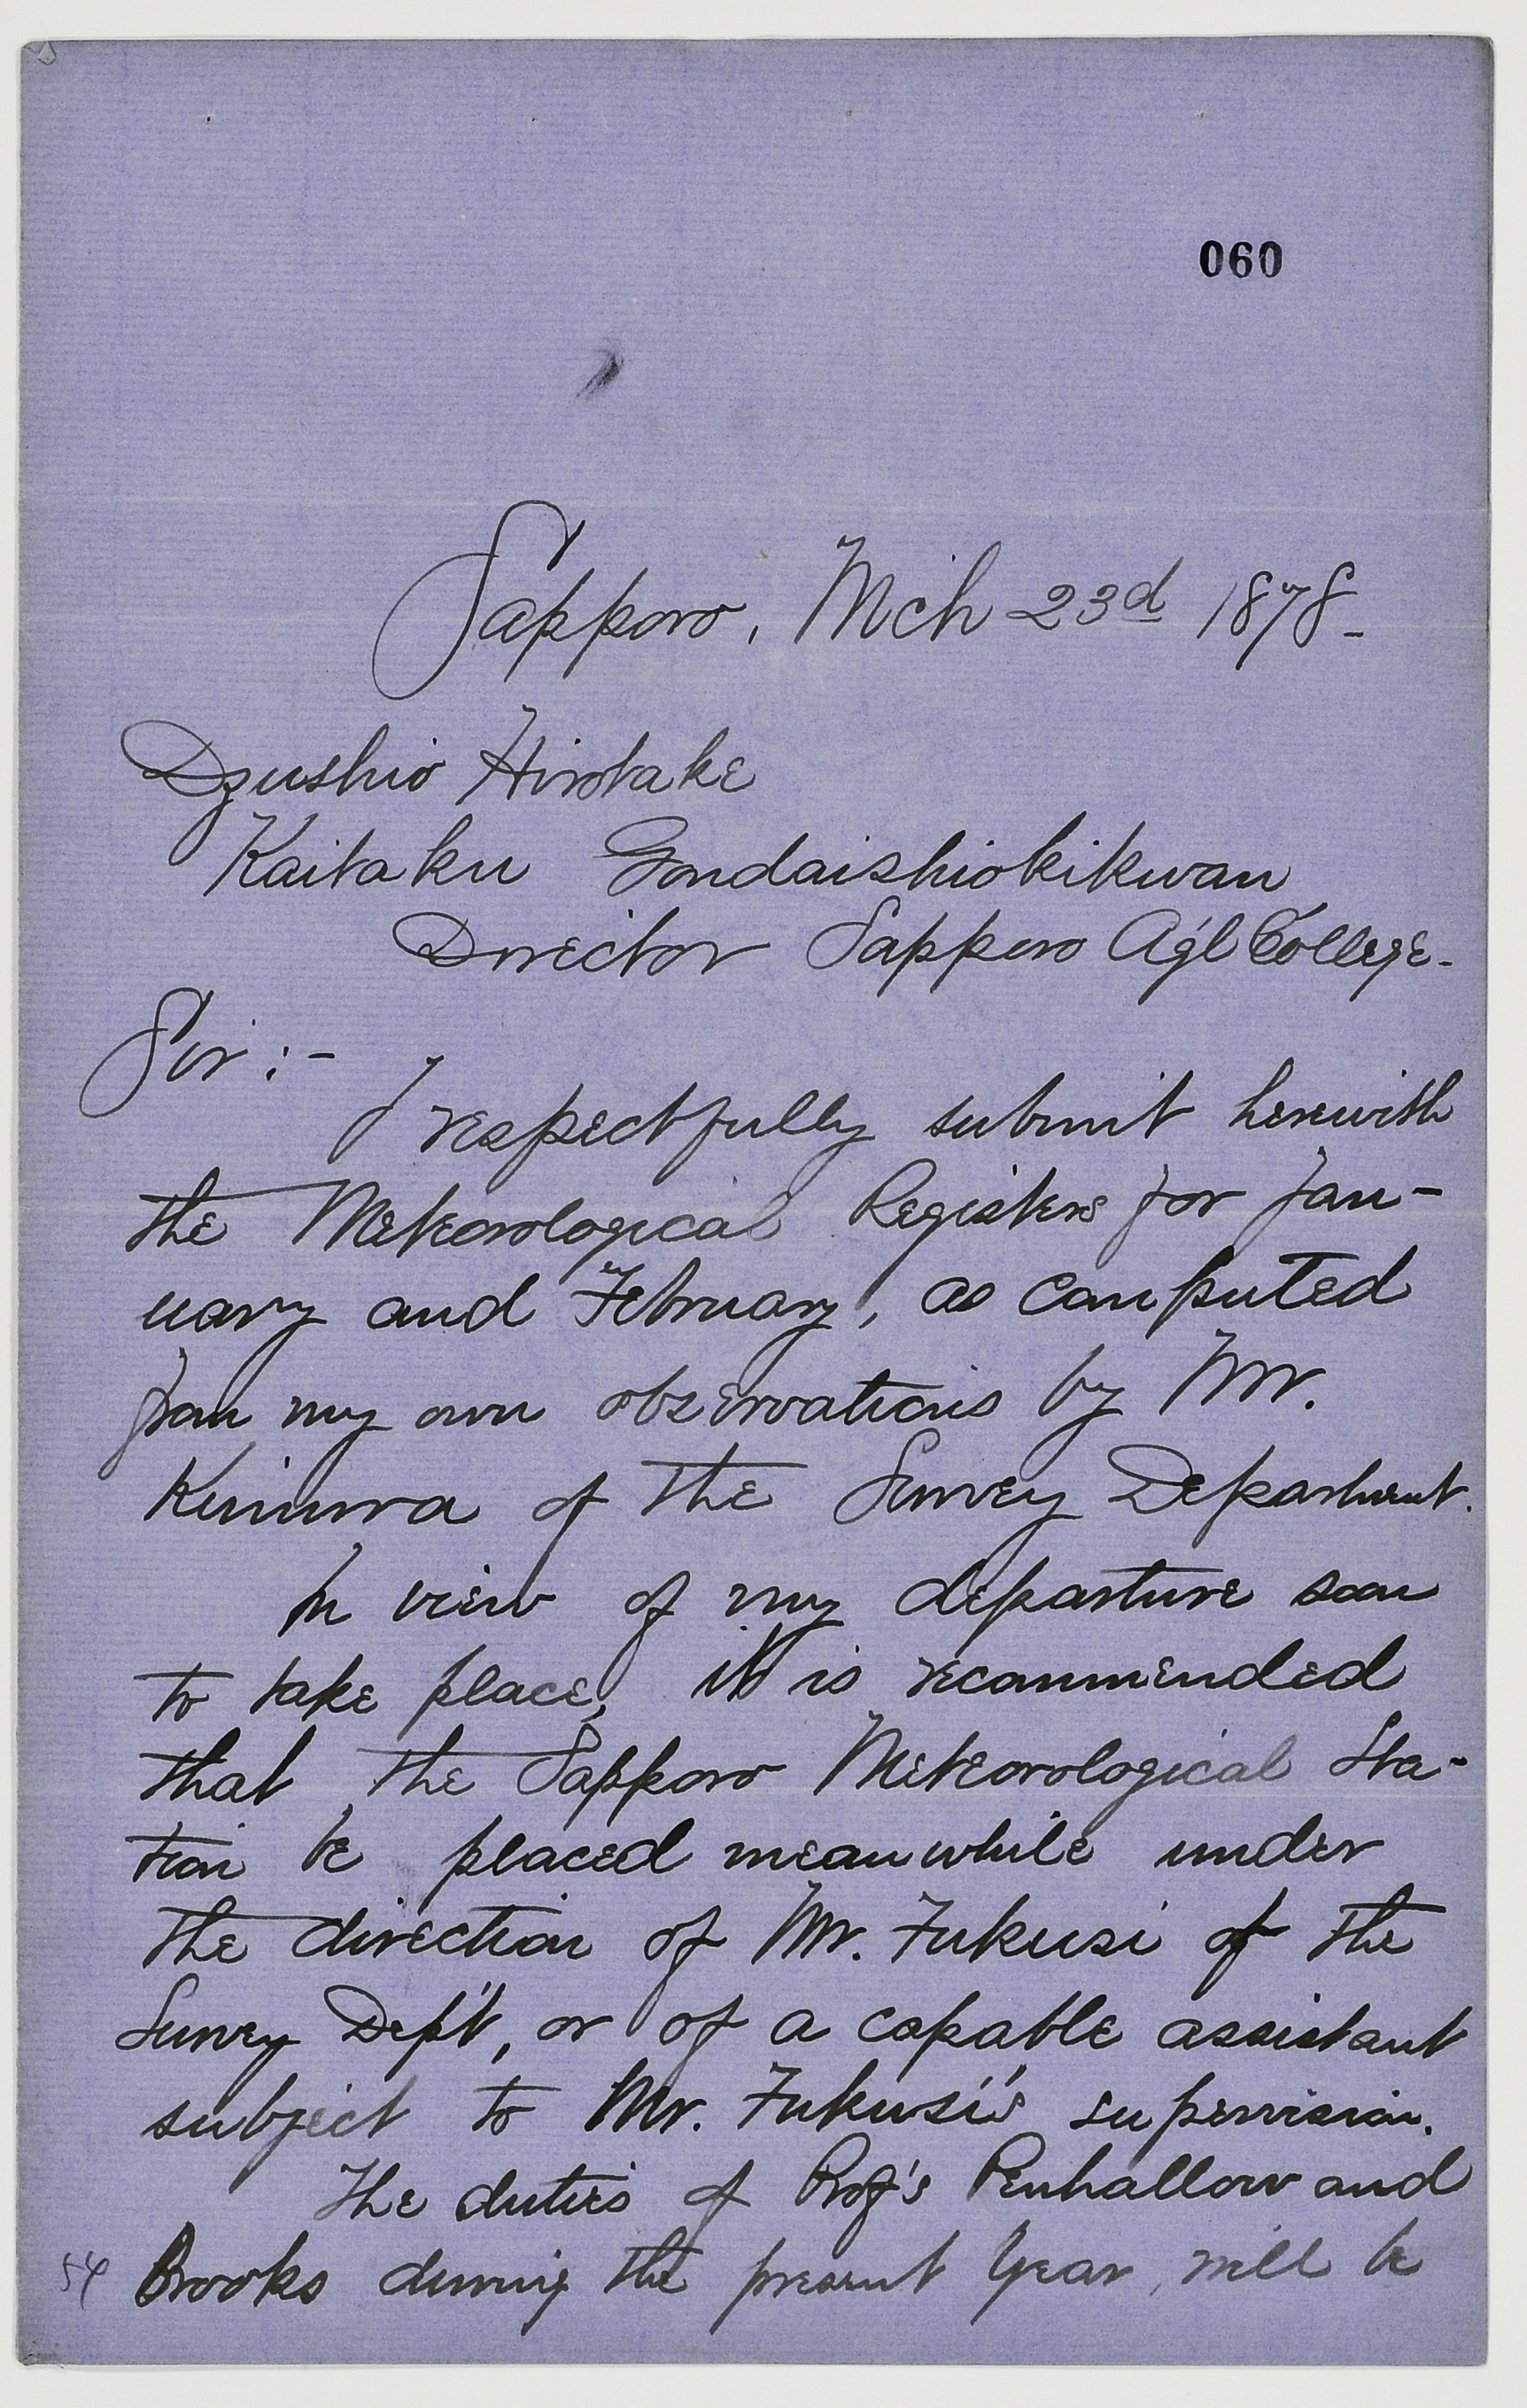 060
Sapporo, Mch 23d 1878-
Dzushio Hirotake
Kaitaku Gondaishiokikwan
Director Sapporo Ag'l College-
Sir :-
I respectfully submit herewith
the Meteorological Registers for Jan-
uary and February, as computed
from my own observations by Mr.
Kimura of the Survey Department.
In view of my departure soon
to take place, it is recommended
that the Sapporo Meteorological Sta-
tion be placed meanwhile under
the direction of Mr. Fukusi of the
Survey Dep't, or of a capable assistant
subject to Mr. Fukusi's supervision.
The duties of Prof's Penhallow and
54 Brooks during the present year, will be